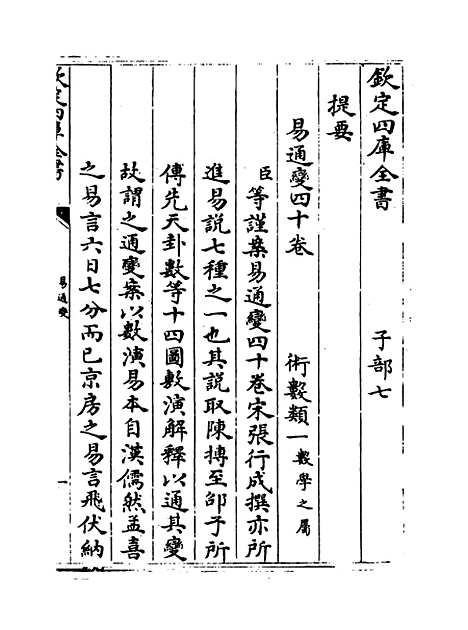 欽定四庫全書 子部七
提要
易通變四十卷 術數類一數學之屬
臣等謹案易通變四十卷宋張行成撰亦所
進易說七種之一也其說取陳摶至邵子所
傳先天卦數等十四圖敷演解釋以通其變
故謂之通變案以數演易本自漢儒然孟喜
之易言六日七分而已京房之易言飛伏納
欽定四庫全書
易通變
一